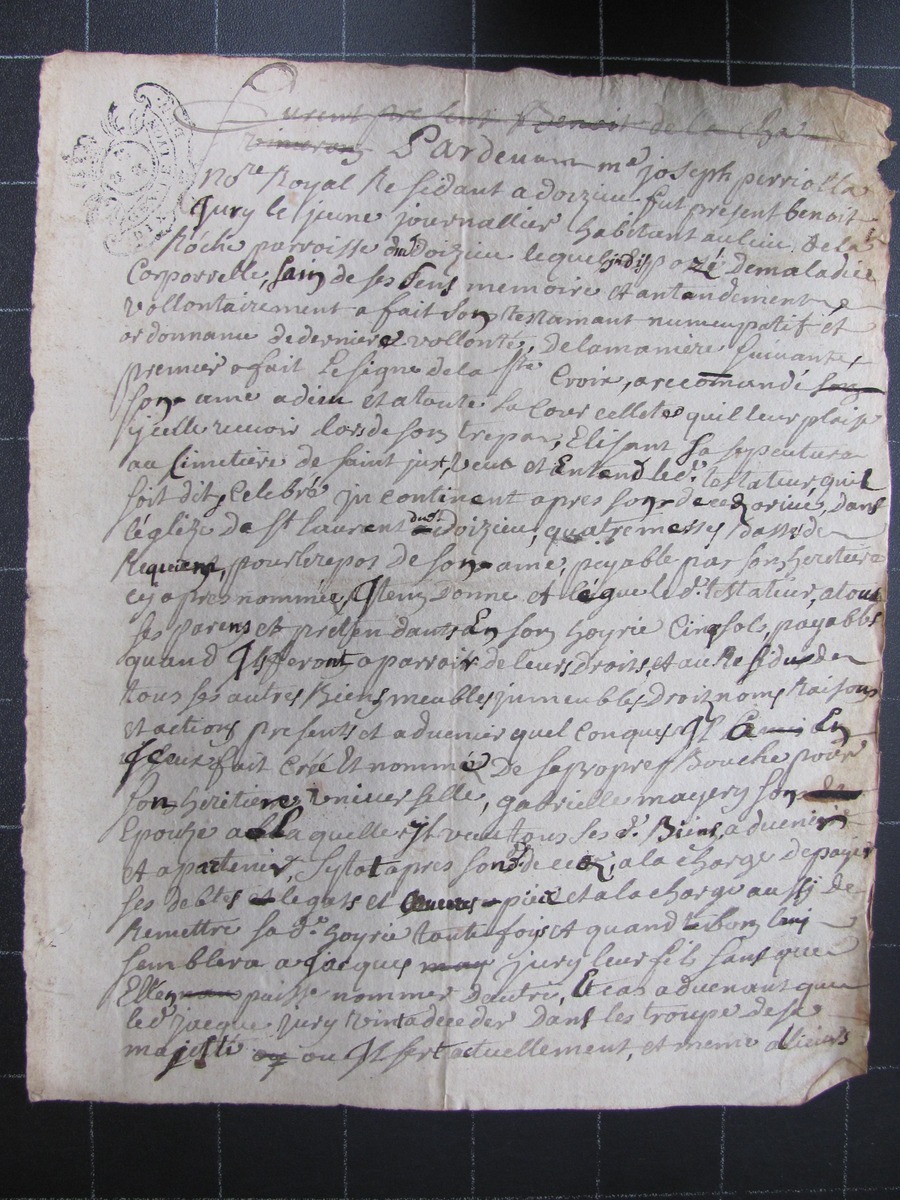 furent present Benoit de la
Pardevant me joseph perriolla
Nore Royal Residant a doizieu fut présent benoit
Jury le jeune journallier habitant au lieu de la
Roche parroisse dud Doizieu lequel indispozé de maladiée
Corporrelle, sain de ses sens memoire et antandement
vollontairement a fait son testamant nuncupatif et
ordonnance de derniere vollonté, de la maniere suivante,
premier a fait le signe de la ste Croix, a recomandé son
son ame a dieu et a toute la Cour celleste quil leur plaise
icelle recevoir lors de son trepas, Elisant sa sepculture
au Cimetiere de saint just, veut et Entend led. testateur quil
soit dit, Celebré incontinent apres son decedz arivé, dans
léglize de st laurent dud. Doizieu, quatre messes basse de
Requiem, pour le repos de son ame, payable par son heretiere
cy apres nommée, Item Donne et légue le d. testateur, a tous
ses parens et prétendants En son hoyrie Cinq sols, payables
quand Ils feront aparroir de leurs droits, et au Residu de
tous ses autres Biens meubles jmmeubles, Droit noms Raisons
et actions presents et advenier quelconques Il En
Iceux fait Créé Et nommé De sa propre Bouche pour
son heritiere, universelle, gabrielle mayery son
Epouze a la quelle Il veut tous ses d. Biens, advenir
et apartenir, sy tot apres son d. decedz, a la charge de payer
ses debtes et legats et œuvres pies et a la charge aussi de
Remettre sa d. hoyrie toute fois et quand bon luy
semblera a jacques may jury leur fils sans que
Elle puisse nommer dautre, Et cas advenant que
led jacque jury vint a deceder dans les troupe de sa
majesté ou Il sert actuellement, et meme allieurs